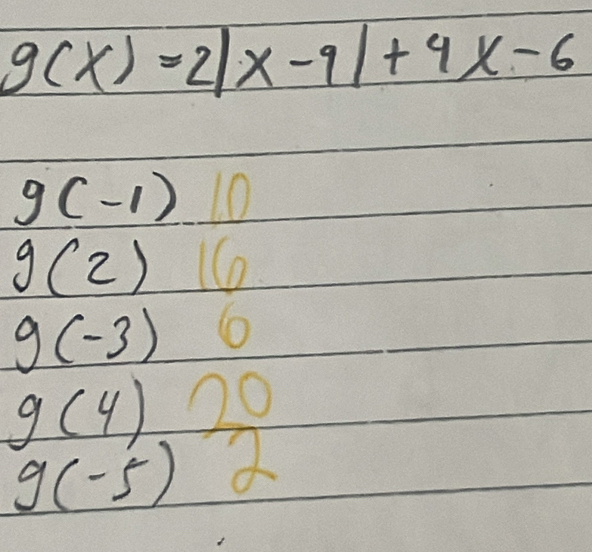 g(x) = 2|x - 9| + 4x - 6
g(-1) 10
g(2) 16
g(-3) 6
g(4) 20
g(-5) 2